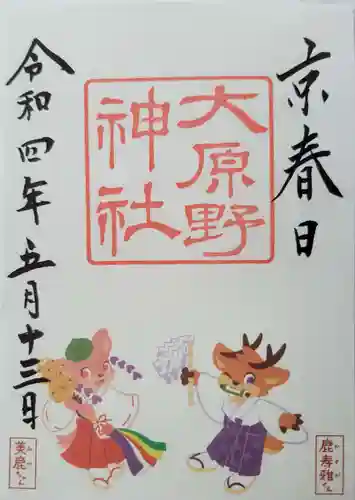 京春日
大原野
神社
令和四年五月十三日
鹿寿雅くん
美鹿ちゃん